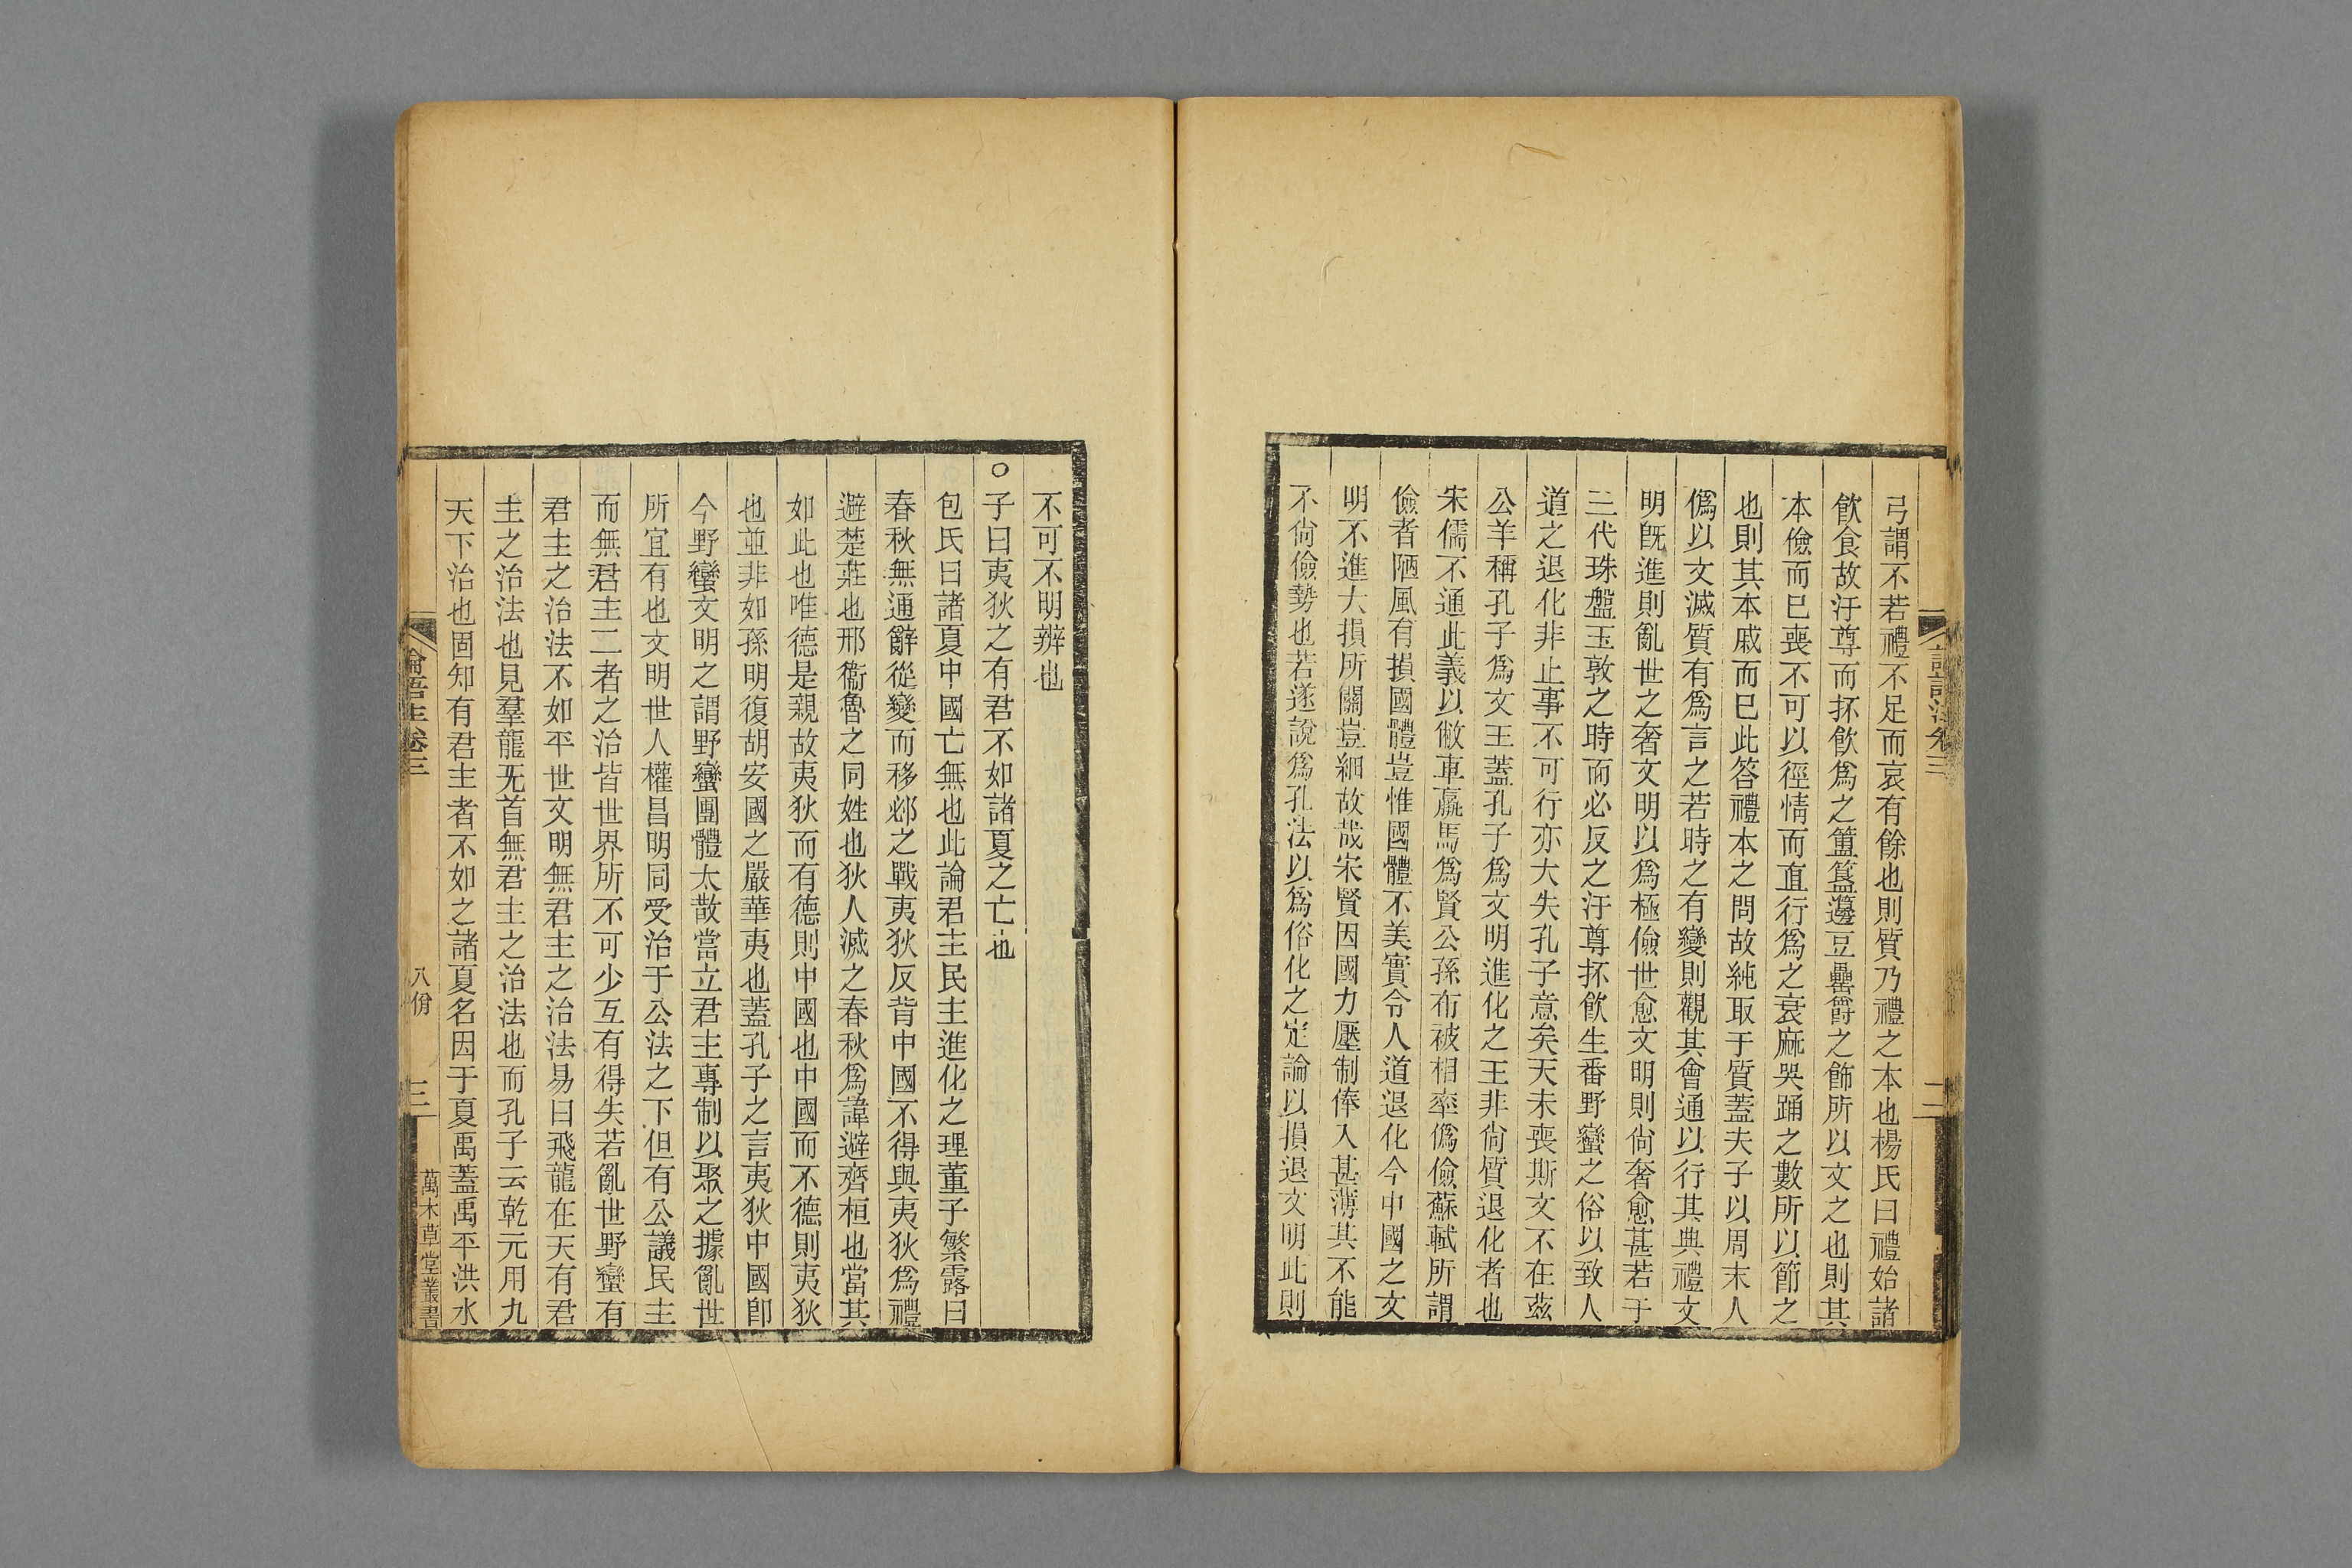 弓謂不若禮不足而哀有餘也則質乃禮之本也楊氏曰禮始諸
飲食故汙尊而抔飲爲之簠簋籩豆罍爵之飾所以文之也則其
本儉而已喪不可以徑情而直行爲之衰麻哭踊之數所以節之
也則其本戚而已此答禮本之問故純取于質蓋夫子以周末人
僞以文滅質有爲言之若時之有變則觀其會通以行其典禮文
明旣進則亂世之奢文明以爲極儉世愈文明則尙奢愈甚若于
三代珠盤玉敦之時而必反之汙尊抔飲生番野蠻之俗以致人
道之退化非止事不可行亦大失孔子意矣天未喪斯文不在茲
公羊稱孔子爲文王蓋孔子爲文明進化之王非尙質退化者也
宋儒不通此義以敝車羸馬爲賢公孫布被相率僞儉蘇軾所謂
儉者陋風有損國體豈惟國體不美實令人道退化今中國之文
明不進大損所關豈細故哉宋賢因國力壓制俸入甚薄其不能
不尙儉勢也若遂說爲孔法以爲俗化之定論以損退文明此則
不可不明辨也
○子曰夷狄之有君不如諸夏之亡也
包氏曰諸夏中國亡無也此論君主民主進化之理董子繁露曰
春秋無通辭從變而移邲之戰夷狄反背中國不得與夷狄爲禮
避楚莊也邢衞魯之同姓也狄人滅之春秋爲諱避齊桓也當其
如此也唯德是親故夷狄而有德則中國也中國而不德則夷狄
也並非如孫明復胡安國之嚴華夷也蓋孔子之言夷狄中國卽
今野蠻文明之謂野蠻團體太散當立君主專制以聚之據亂世
所宜有也文明世人權昌明同受治于公法之下但有公議民主
而無君主二者之治皆世界所不可少互有得失若亂世野蠻有
君主之治法不如平世文明無君主之治法易曰飛龍在天有君
主之治法也見羣龍无首無君主之治法也而孔子云乾元用九
天下治也固知有君主者不如之諸夏名因于夏禹蓋禹平洪水
論語注卷三
八佾
三
萬木草堂叢書